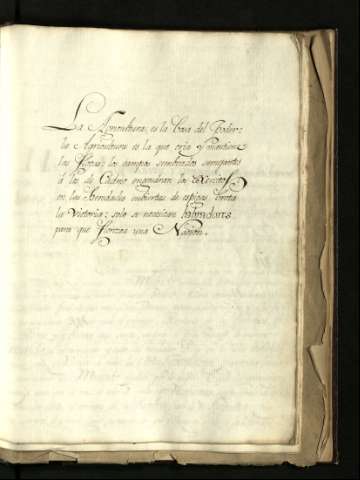 La Agricultura, es la Basa del Poder:
la Agricultura es la que cria y mantiene
las Flotas: los campos sembrados semejantes
á los de Cadmo engendran los Exercitos
en las heredades cubiertas de espigas, brota
la Victoria; solo se necesitan labradores
para que florezca una Nacion.